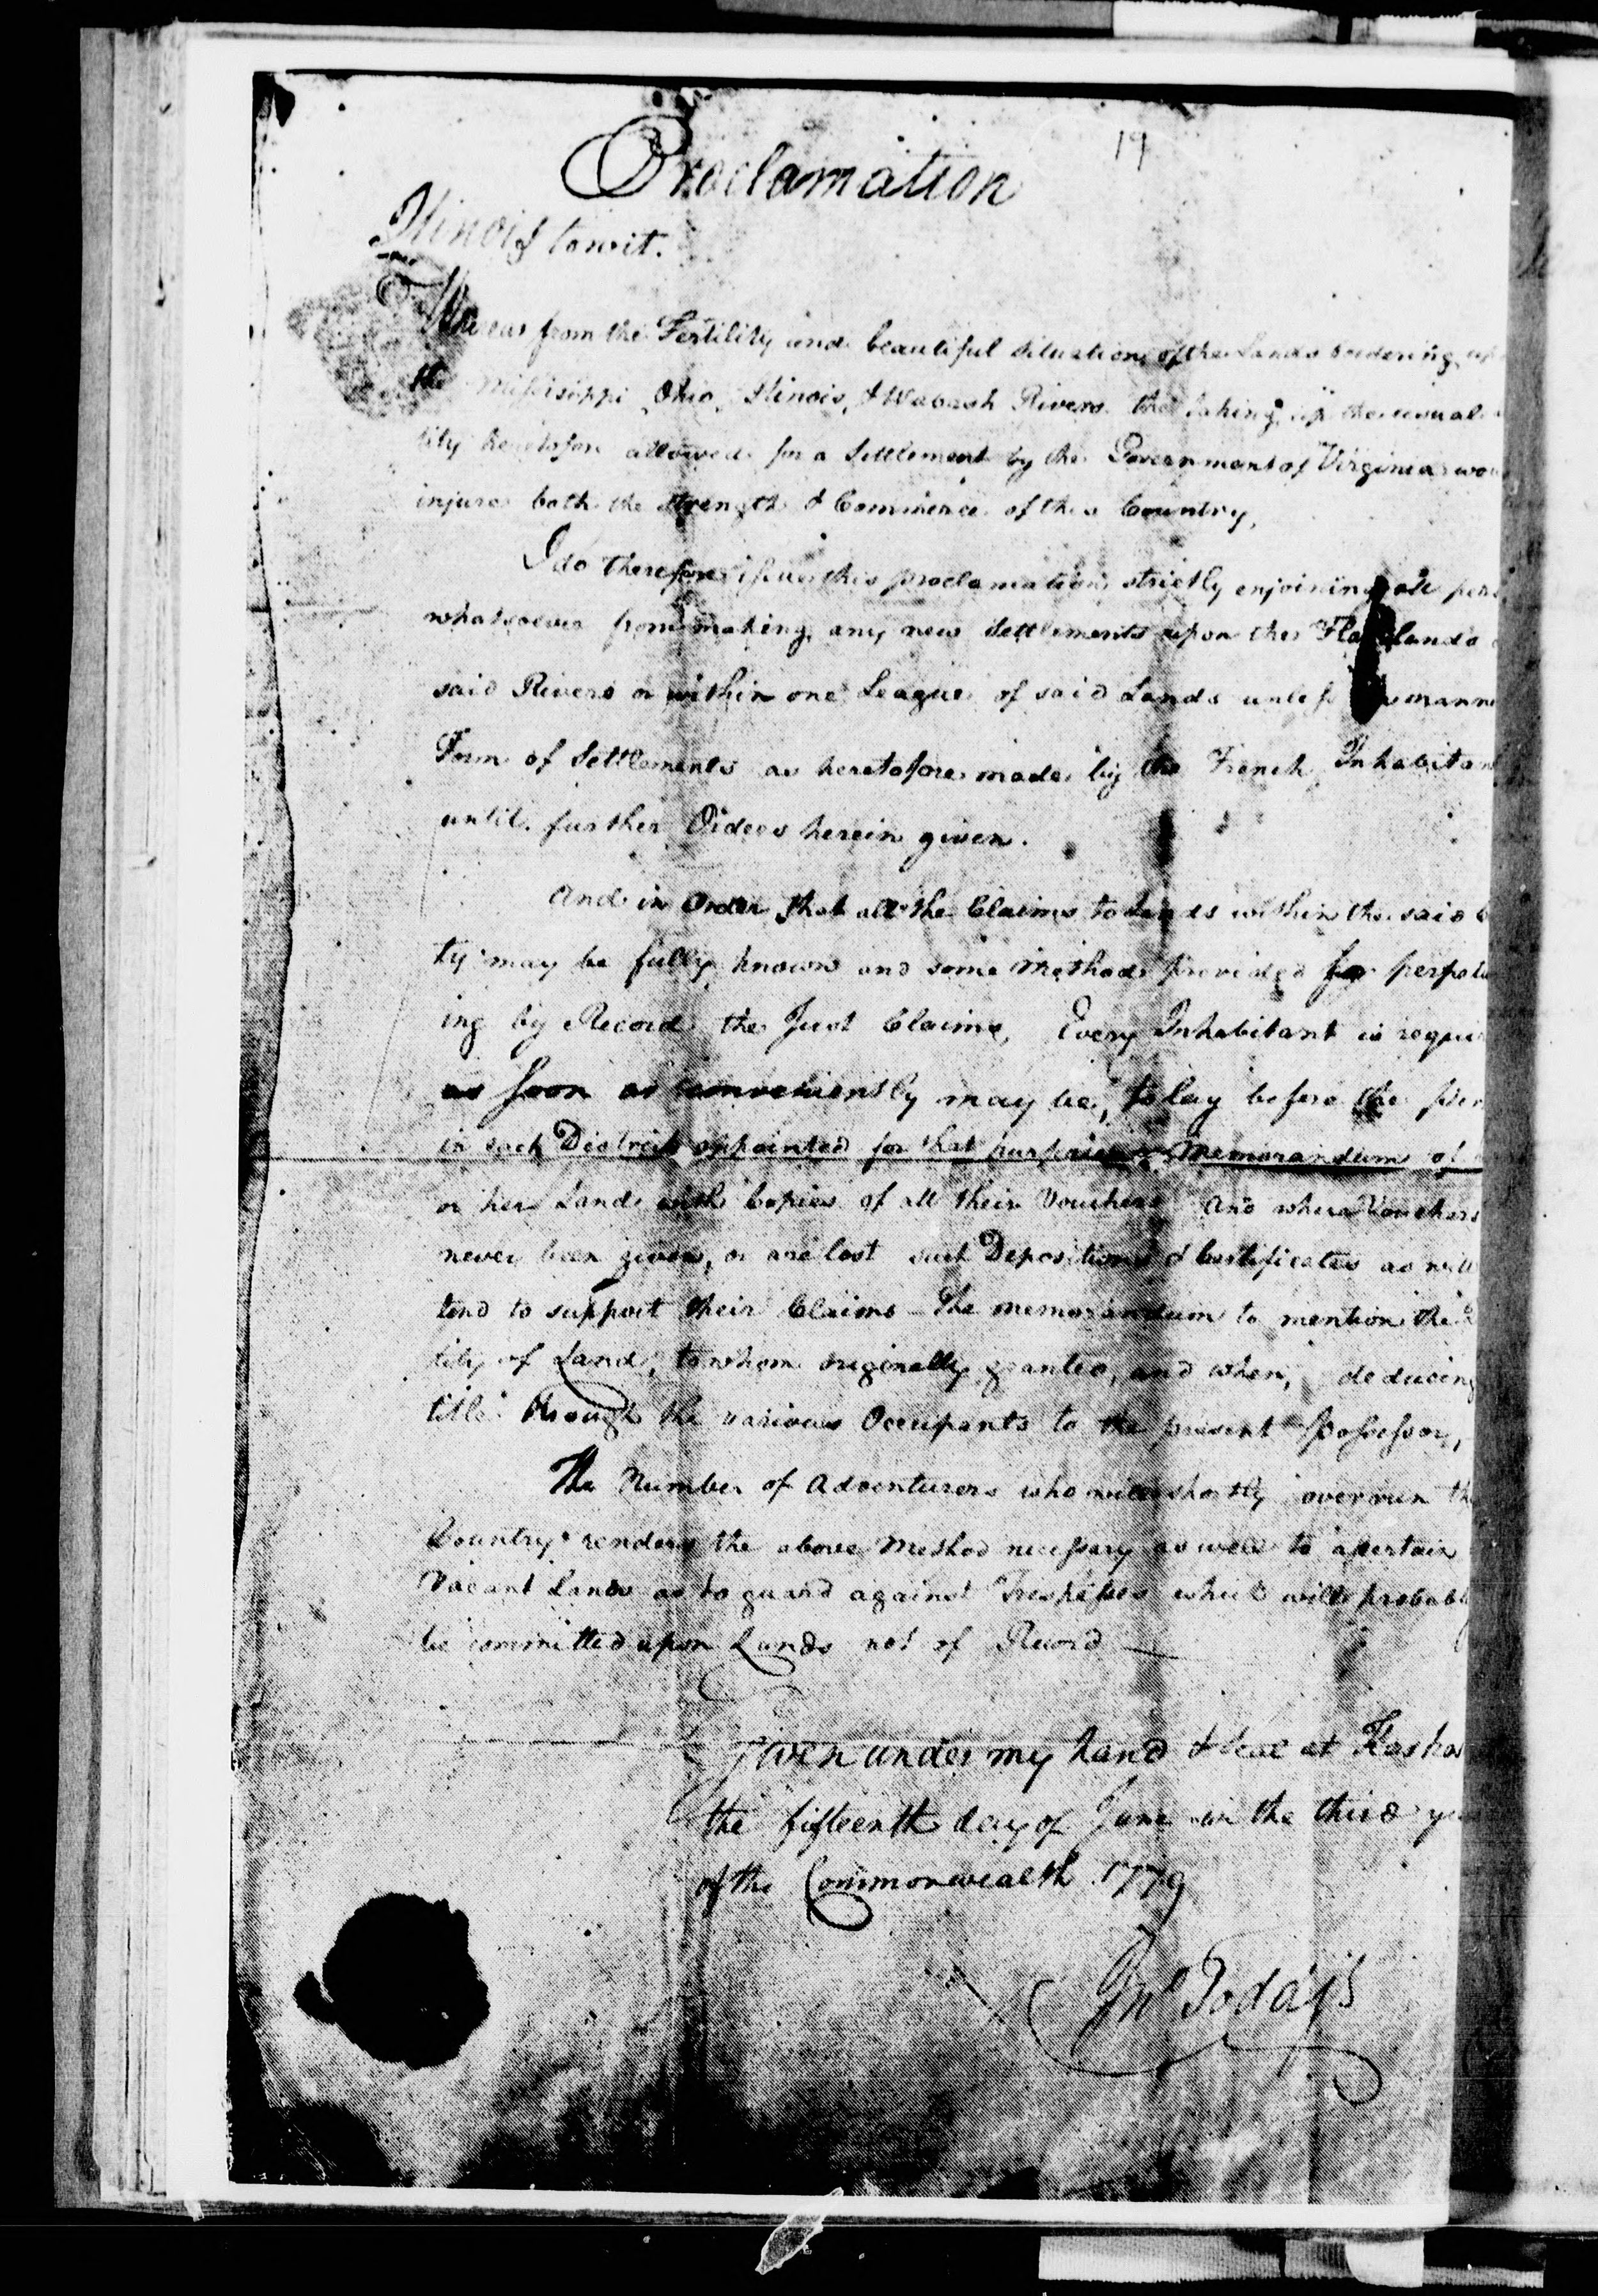 19
Proclamation
Illinois towit.
Whereas from the Fertility and beautiful situation of the Lands bordering
the Missisippi, Ohio, Illinois, & Wabash Rivers the taking up the usual
tity heretofore allowed for a Settlement by the Government of Virginia wou
injure both the strength & Commerce of this Country,
I do therefore issue this proclamation strictly enjoining all pers
whatsoever from making any new Settlements upon the Flat Lands
said Rivers or within one League of said Lands unless manne
Form of Settlements as heretofore made by the French Inhabitan
until further Orders herein given.
And in Order that all the Claims to Lands within the said
ty may be fully known and some Method provided for perpetu
ing by Record the Just Claims, Every Inhabitant is requir
as soon as conveniently may be, to lay before the per
in each District appointed for that purpose a Memorandum of
or her Land with Copies of all their Vouchers And where Vouchers
never been given, or are lost such Depositions & Certificates as will
tend to support their Claims — The memorandum to mention the
tity of Land, to whom originally granted, and when, deducing
title through the various Occupants to the present Possessor,
The Number of Adventurers who will shortly overrun th
Country renders the above Method necessary as well to assertain
Vacant Lands as to guard against Trespasses which will probably
be committed upon Lands not of Record —
Given under my hand & Seal at Kaskas
the fifteenth day of June in the third ye
of the Commonwealth 1779
Jno Todd Jr